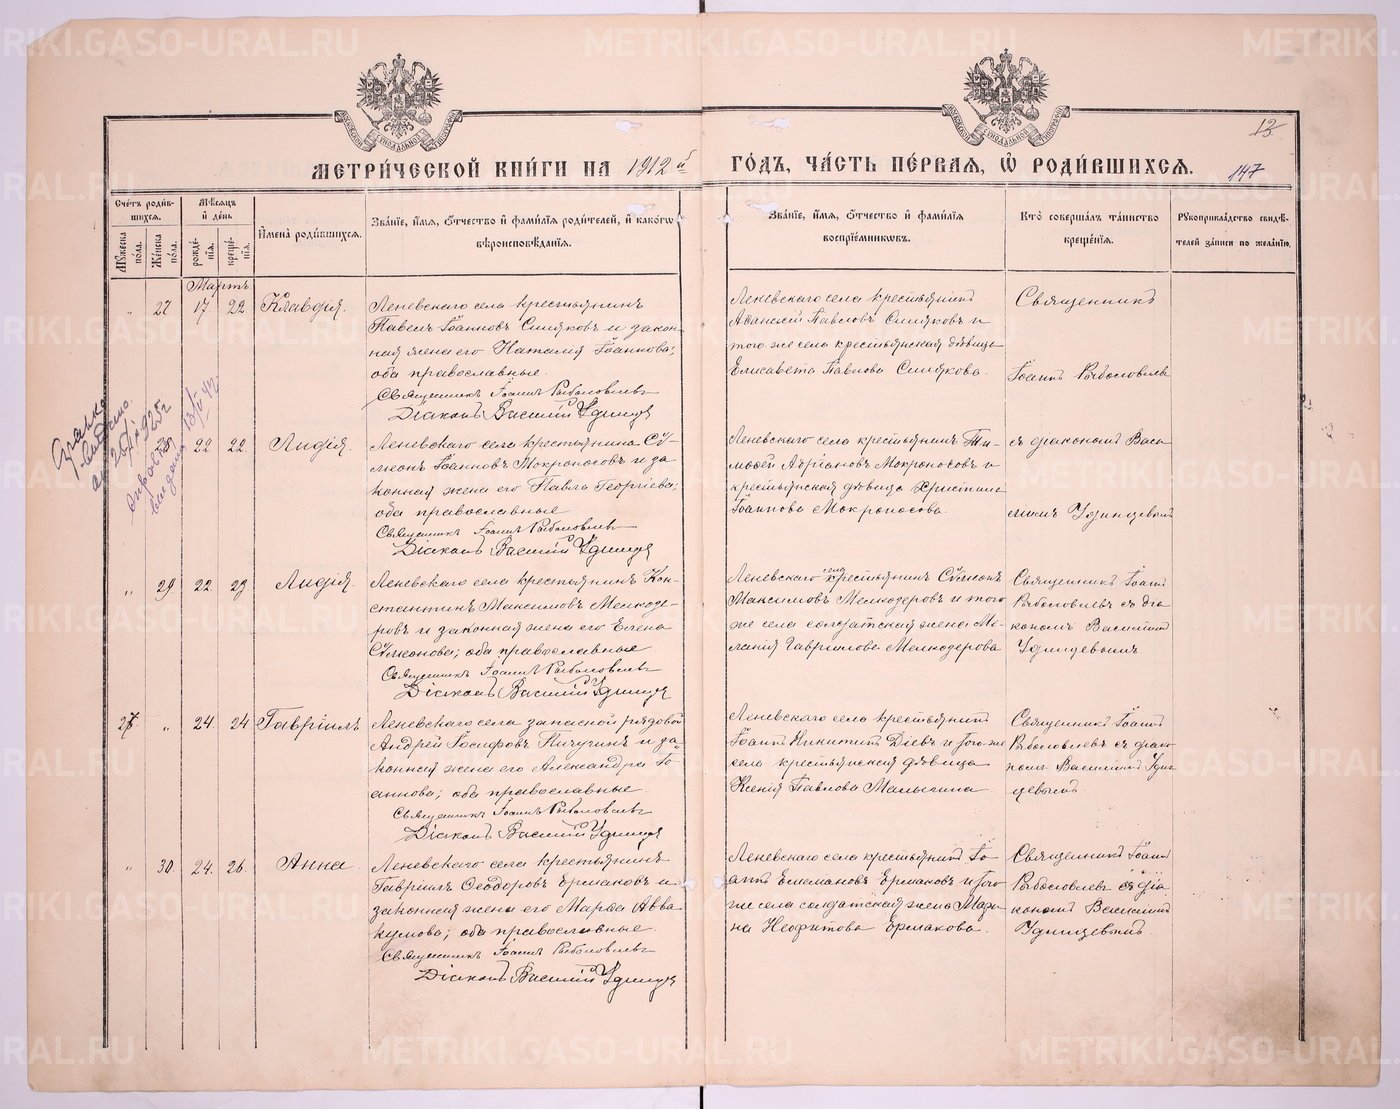 МЕТРИЧЕСКОЙ КНИГИ НА 1912 й ГОДЪ, ЧАСТЬ ПЕРВАЯ, Ѡ РОДИВШИХСЯ.
13
147
Счетъ родив-
шихся.
Мужеска
пола.
Женска
пола.
Мѣсяцъ
и день
рожде-
нія.
креще-
нія.
Имена родившихся.
Званіе, имя, отчество и фамилія родителей, и какогѡ
вѣроисповѣданія.
Званіе, имя, отчество и фамилія
воспріемникѡвъ.
Кто совершалъ таинство
крещенія.
Рукоприкладство свидѣ-
телей записи по желанію.
Мартъ.
" 27 17. 22 Клавдія.
Леневскаго села крестьянинъ
Павелъ Іоанновъ Смиряковъ и закон-
ная жена его Наталія Іоаннова;
оба православные.
Священникъ Іоаннъ Рыболовлевъ
Діаконъ Василій Удинцев
Леневскаго села крестьянинъ
Павловъ и
того же села крестьянская дѣвица
Елисавета Павлова
Священникъ
Іоаннъ Рыболовлевъ
22. 22 Лидія.
Леневскаго села крестьянина Сѵ-
меонъ Іоанновъ Мокроносовъ и за-
конная жена его Павла Георгіева;
оба православные.
Священникъ Іоаннъ Рыболовлевъ
Діаконъ Василій Удинцев
Леневскаго села крестьянинъ Ти-
моѳей Мокроносовъ и
крестьянская дѣвица Христина
Іоаннова Мокроносова.
съ діакономъ Васи-
ліемъ Удинцевымъ
" 29 22. 23 Лидія.
Леневскаго села крестьянинъ Кон-
стантинъ Максимовъ Мелкозе-
ровъ и законная жена его Елена
Сѵмеонова; оба православные
Священникъ Іоаннъ Рыболовлевъ
Діаконъ Василій Удинцев
Леневскаго села крестьянинъ Сѵмеонъ
Максимовъ Мелкозеровъ и того
же села солдатская жена Ме-
ланія Гавриилова Мелкозерова
Священникъ Іоаннъ
Рыболовлевъ съ діа-
кономъ Василіемъ
Удинцевымъ
27. " 24. 24 Гавріилъ
Леневскаго села запасной рядовой
Андрей Іосифовъ Пичугинъ и за-
конная жена его Александра Іо-
аннова; оба православные.
Священникъ Іоаннъ Рыболовлевъ
Діаконъ Василій Удинцев
Леневскаго села крестьянинъ
Іоаннъ Никитинъ Діевъ и того же
села крестьянская дѣвица
Ксенія Павлова Малыгина.
Священникъ Іоаннъ
Рыболовлевъ съ діако-
номъ Василіемъ Удин-
цевымъ.
" 30. 24. 26. Анна
Леневскаго села крестьянинъ
Гавріилъ Ѳеодоровъ Ермаковъ и
законная жена его Марѳа Авва-
кумова; оба православные
Священникъ Іоаннъ Рыболовлевъ
Діаконъ Василій Удинцев
Леневскаго села крестьянинъ Іо-
аннъ Ермаковъ и того
же села солдатская жена Мари-
на Неофитова Ермакова.
Священникъ Іоаннъ
Рыболовлевъ съ діа-
кономъ Василіемъ
Удинцевымъ.
METRIKI.GASO-URAL.RU